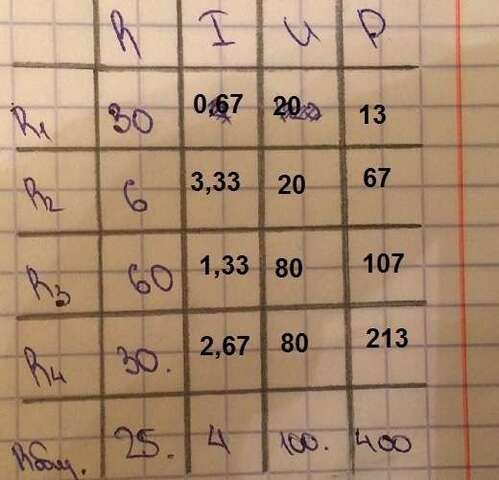 R I U P
R1 30 0,67 20 13
R2 6 3,33 20 67
R3 60 1,33 80 107
R4 30. 2,67 80 213
Rобщ. 25. 4 100. 400